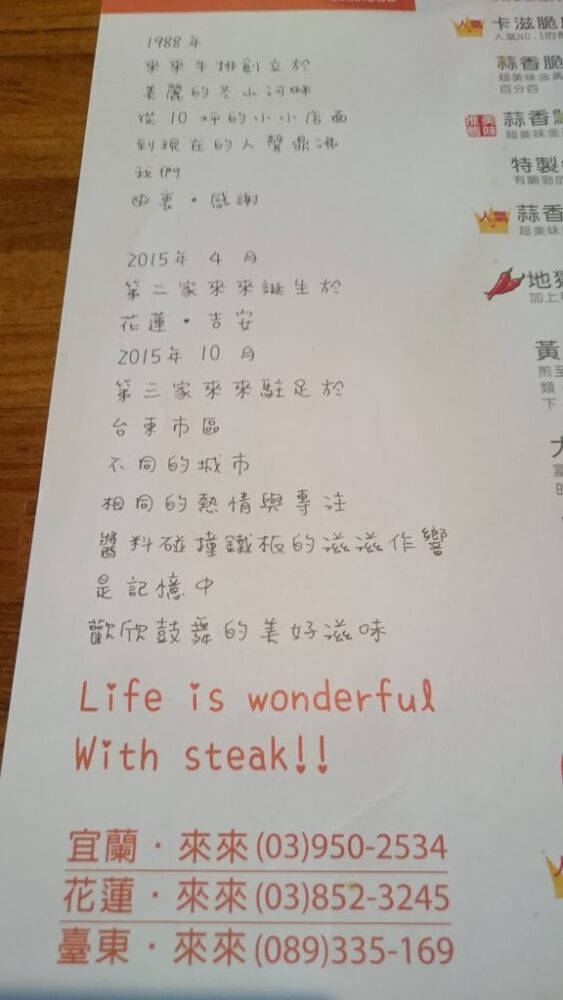 1988年
來來牛排創立於
美麗的冬山河畔
從10坪的小小店面
到現在的人聲鼎沸
我們
由衷・感謝
2015年 4 月
第二家來來誕生於
花蓮・吉安
2015年 10 月
第三家來來駐足於
台東市區
不同的城市
相同的熱情與專注
醬料碰撞鐵板的滋滋作響
是記憶中
歡欣鼓舞的美好滋味
Life is wonderful
With steak!!
宜蘭・來來(03)950-2534
花蓮・來來(03)852-3245
臺東・來來(089)335-169
人氣
卡滋脆
人氣NO.1的
蒜香脆
超美味金黃
百分百
推薦美味
蒜香
超美味金
特製
有嚼勁的
人氣
蒜香
超美味
地獄
加上
黃
煎至
類
下
的